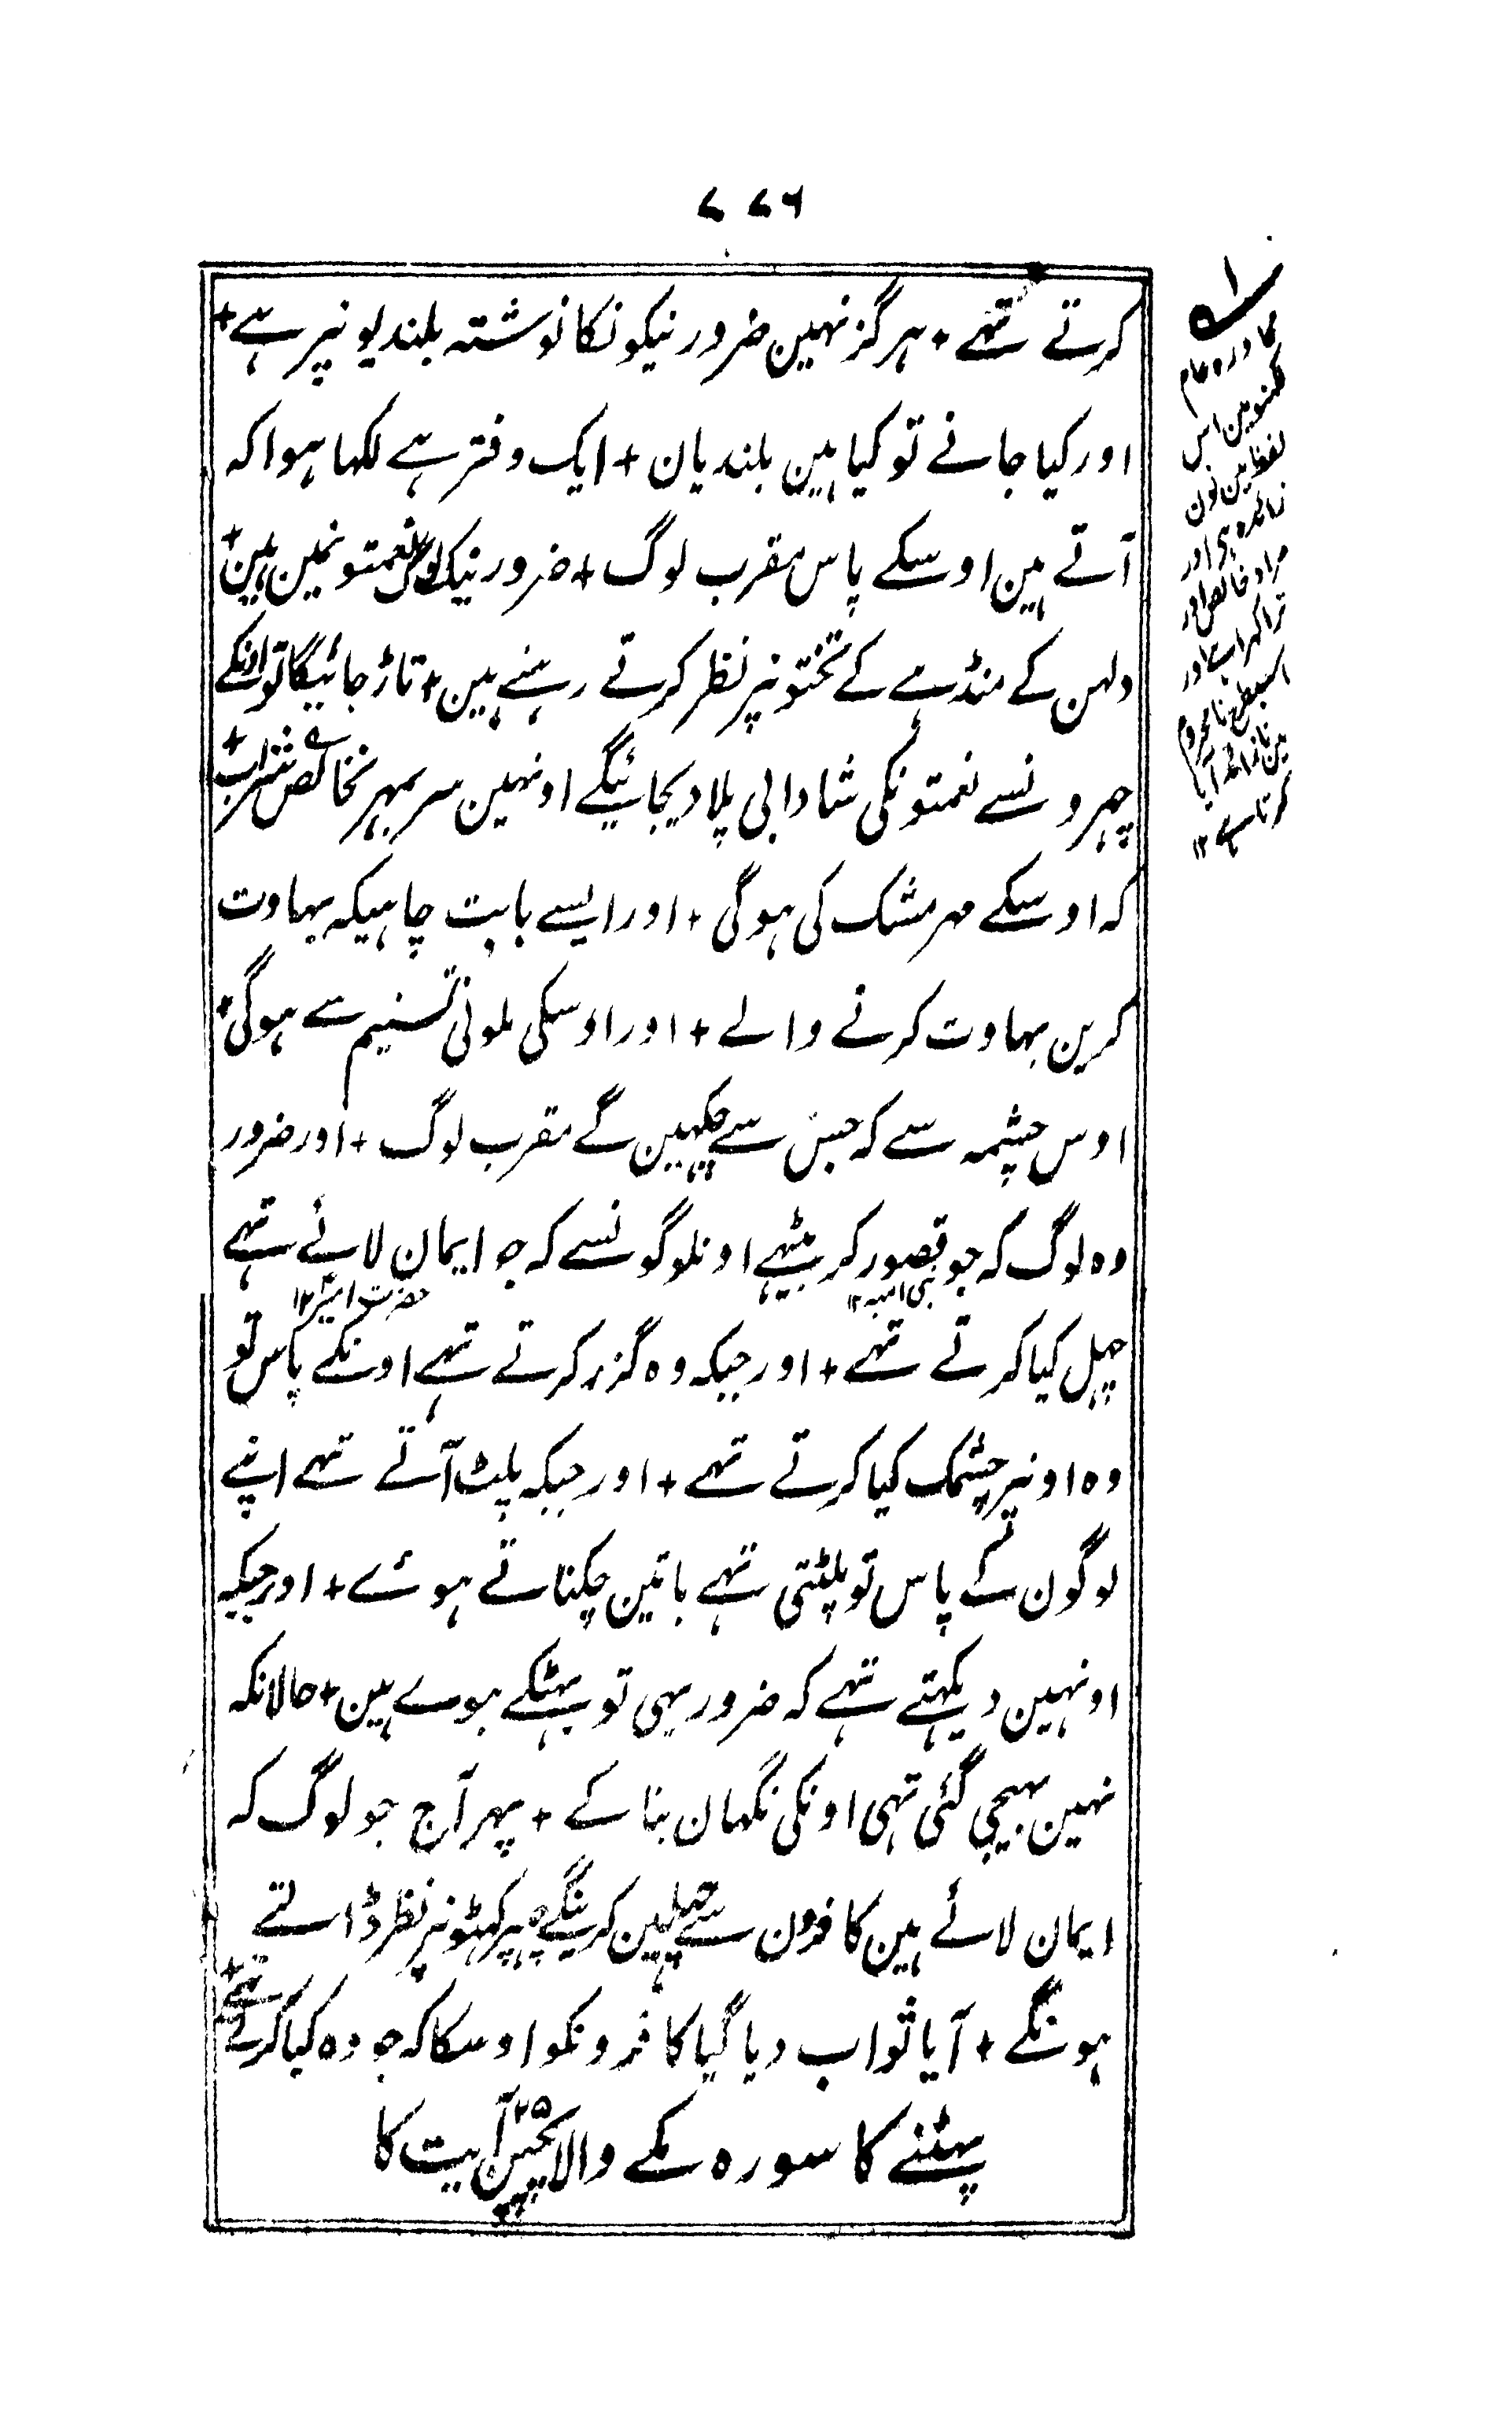 ۷۷۶
کرتے تہے + ہرگز نہین ضرور نیکونکا نوشتہ بلندیونپر ہے +
اور کیا جانے تو کیا ہین بلندیان + ایک دفتر ہے لکہا ہوا کہ
آتے ہین اوسکے پاس مقرب لوگ + ضرور نیک لوگ نعمتونمین ہین +
دلہن کے منڈہے کے تختونپر نظر کرتے رہنے ہین + تاڑ جائیگا تو اونکے
چہرونسے نعمتونکی شادابی پلادیجائینگے اونہین سر بمہر نخالص شراب +
کہ اوسکے مہر مشک کی ہوگی + اور ایسے بابت چاہیکہ بہاوت
کرین بہاوت کرنے والے + اور اوسکی ملونی تسنیم سے ہوگی +
اوس چشمہ سے کہ جس سے چکہین گے مقرب لوگ + اور ضرور
وہ لوگ کہ جو قصور کر بیٹہے اونلوگونسے کہ جو ایمان لائے تہے
بنی امیہ ۱۲
حضرت امیر ۱۲
چہل کیا کرتے تہے + اور جبکہ وہ گزر کرتے تہے اونکے پاس تو
وہ اونپر چشمک کیا کرتے تہے + اور جبکہ پلٹ آتے تہے اپنے
لوگون کے پاس تو پلٹتی تہے باتین چکناتے ہوئے + اور جبکہ
اونہین دیکہتے تہے کہ ضرور یہی تو بہٹکے ہوے ہین + حالانکہ
نہین بہیجی گئی تہی اونکی نگہبان بنا کے + پہر آج جو لوگ کہ
ایمان لائے ہین کافرون سے چہلین کرینگے چہپرکہٹونپر نظر ڈالتے
ہونگے + آیا ثواب دیا گیا کافرونکو اوسکا کہ جو وہ کیا کرتے تہے +
پہٹنے کا سورہ مکے والا پچیس ۲۵ آیت کا
۱
محاورہ عام
لکہنو مین اس
لفظ مین نون
زائدہ ہی اور
مراد خالص اور
نرا کہرا ہے اور
اسیطرح نامحروم
مین نا زائد آیا
کرتا ہے ۱۲